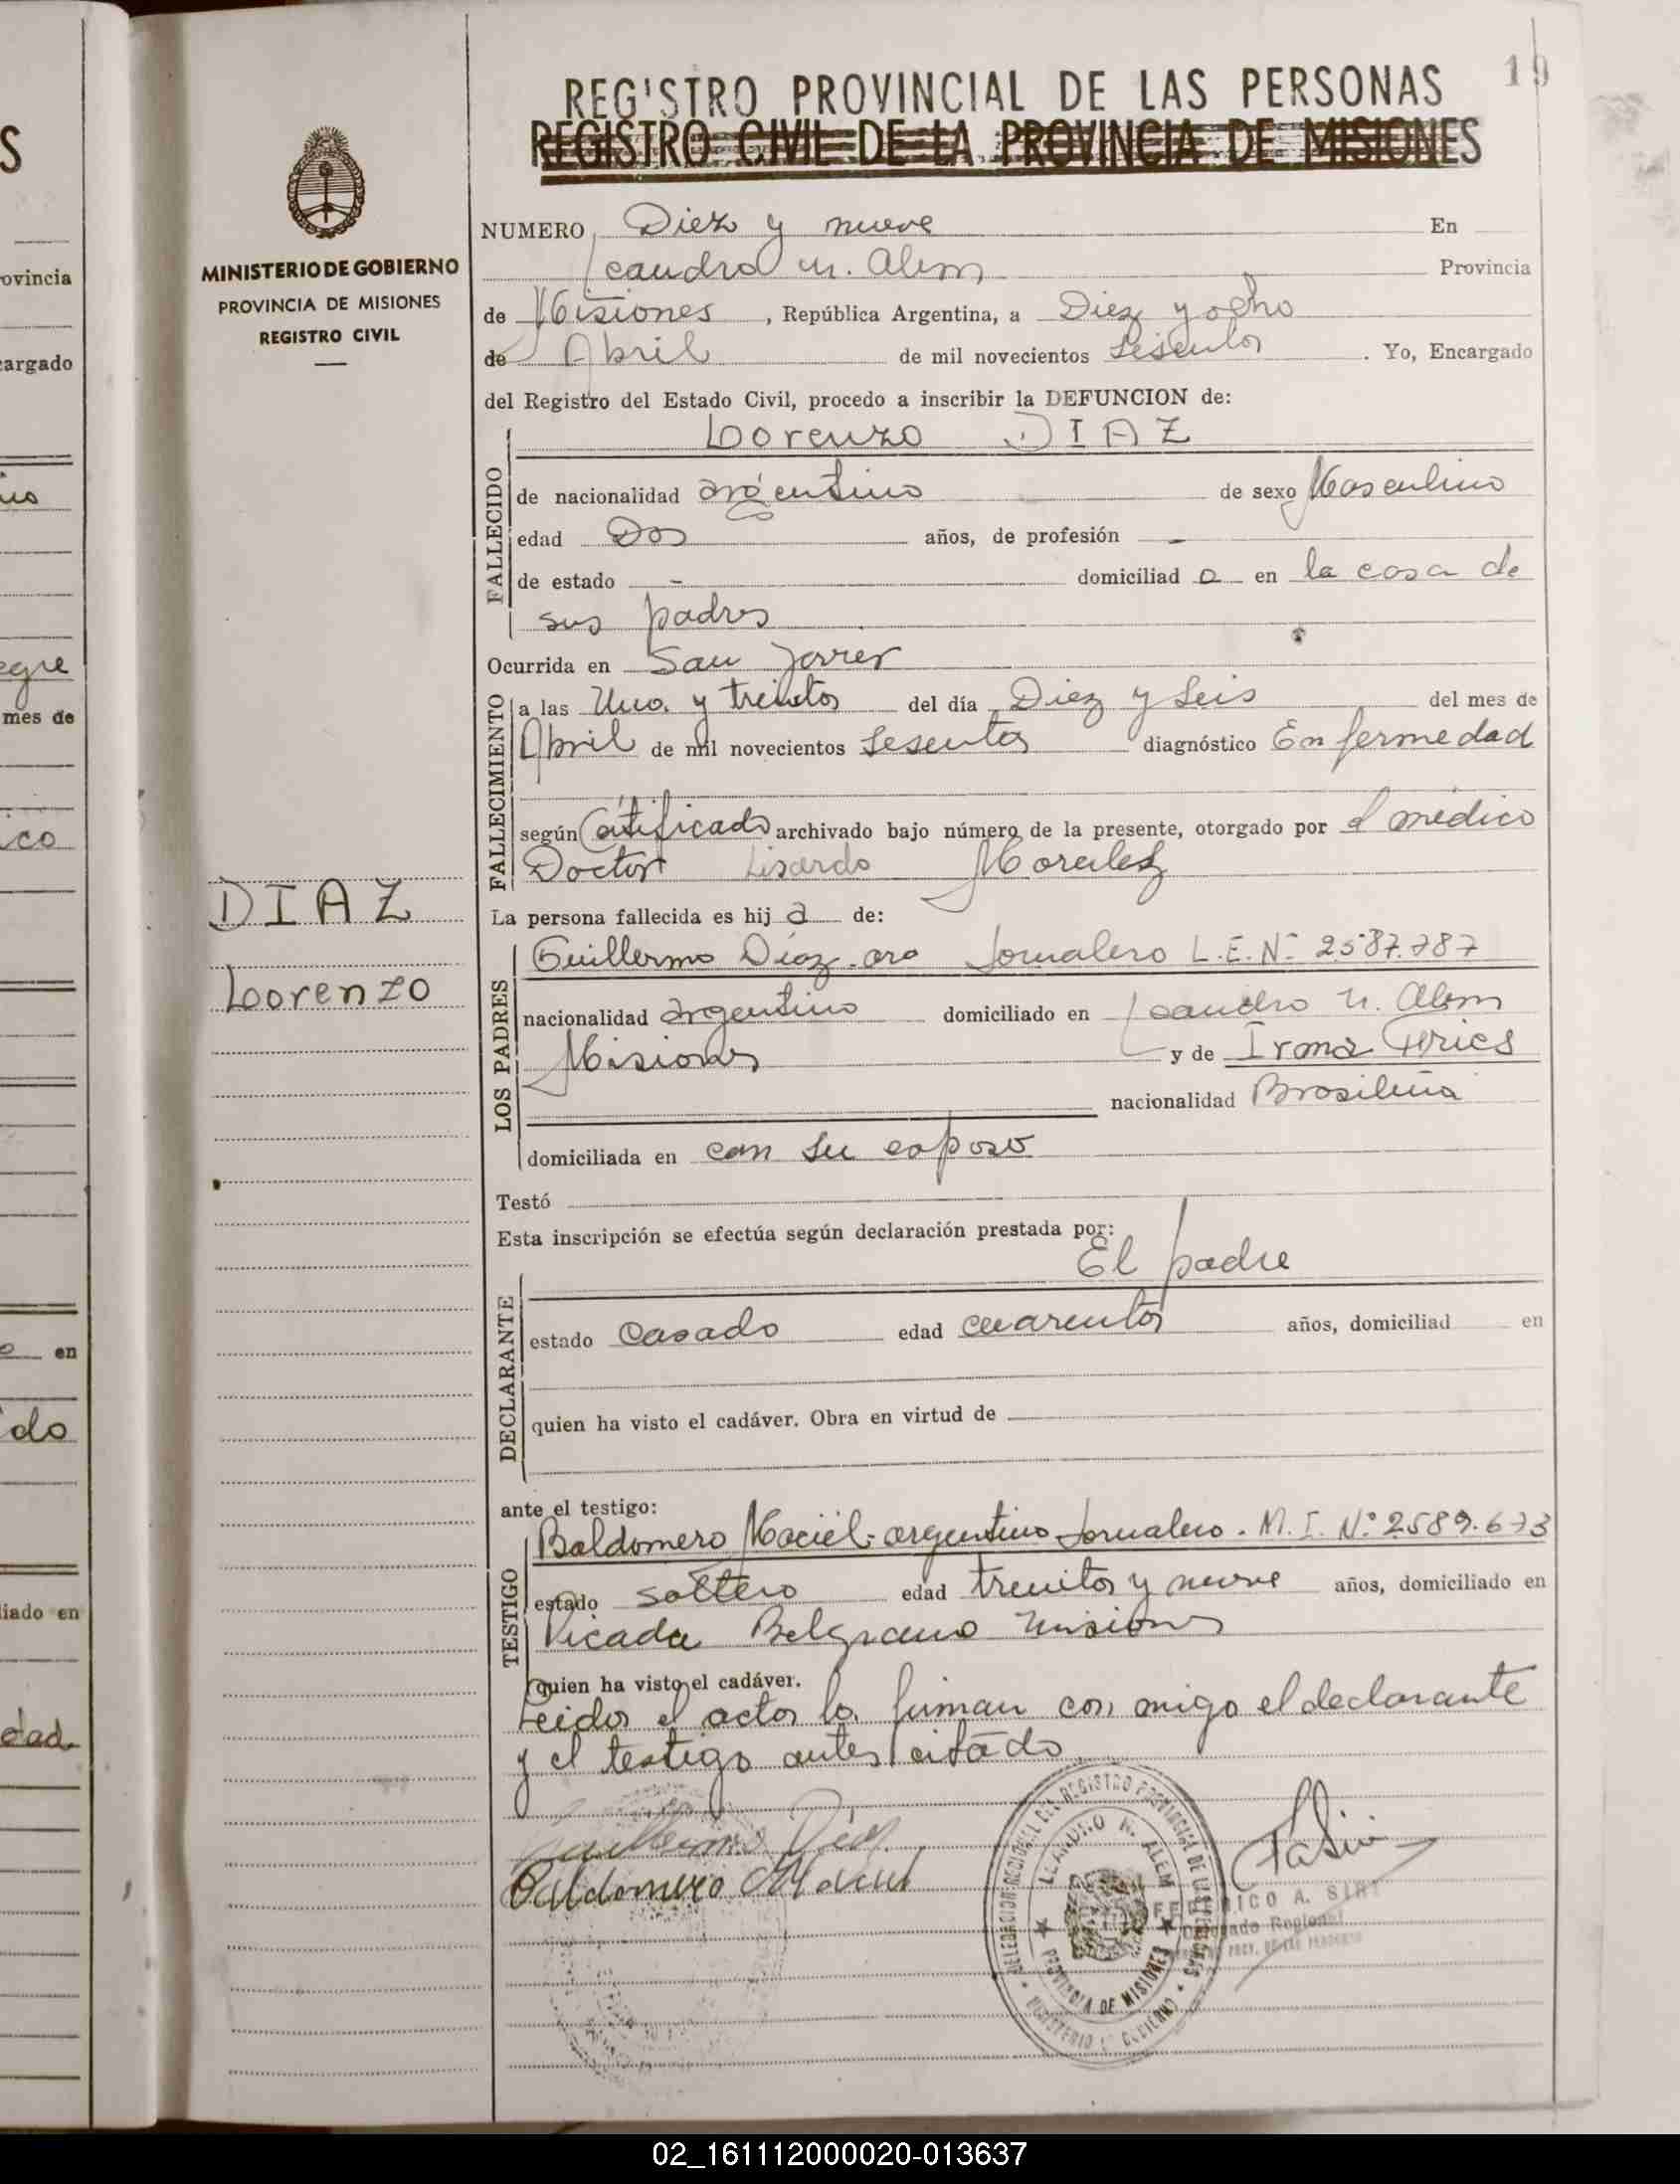 19
REGISTRO PROVINCIAL DE LAS PERSONAS
REGISTRO CIVIL DE LA PROVINCIA DE MISIONES
MINISTERIO DE GOBIERNO
PROVINCIA DE MISIONES
REGISTRO CIVIL
NUMERO Diez y nueve En
Leandro N. Alem Provincia
de Misiones, República Argentina, a Diez y ocho
de Abril de mil novecientos Sesenta. Yo, Encargado
del Registro del Estado Civil, procedo a inscribir la DEFUNCION de:
FALLECIDO
Lorenzo DIAZ
de nacionalidad argentino de sexo Masculino
edad Dos años, de profesión -
de estado - domiciliad o en la casa de
sus padres
Ocurrida en San Javier
FALLECIMIENTO
a las Una y treinta del día Diez y Seis del mes de
Abril de mil novecientos Sesenta diagnóstico Enfermedad
según Certificado archivado bajo número de la presente, otorgado por el médico
Doctor Lisardo Morales
La persona fallecida es hij o de:
DIAZ
Lorenzo
LOS PADRES
Guillermo Díaz Jornalero L.E. Nº 2587.787
nacionalidad argentino domiciliado en Leandro N. Alem
Misiones y de Irma
nacionalidad Brasileña
domiciliada en con su esposo
Testó
Esta inscripción se efectúa según declaración prestada por:
El padre
DECLARANTE
estado Casado edad cuarenta años, domiciliad en
quien ha visto el cadáver. Obra en virtud de
ante el testigo:
TESTIGO
Baldomero Maciel - argentino Jornalero. M.I. Nº 2589.673
estado soltero edad treinta y nueve años, domiciliado en
Picada Belgrano Misiones
quien ha visto el cadáver.
Leida el acta la firman con migo el declarante
y el testigo antes citado
Guillermo Díaz
Baldomero Maciel
DELEGACION REGIONAL DEL REGISTRO PROVINCIAL DE LAS PERSONAS
LEANDRO N. ALEM
PROVINCIA DE MISIONES
MINISTERIO DE GOBIERNO
FEDERICO A.
Delegado Regional
S
ovincia
cargado
egre
mes de
ico
en
do
liado en
edad.
02_161112000020-013637